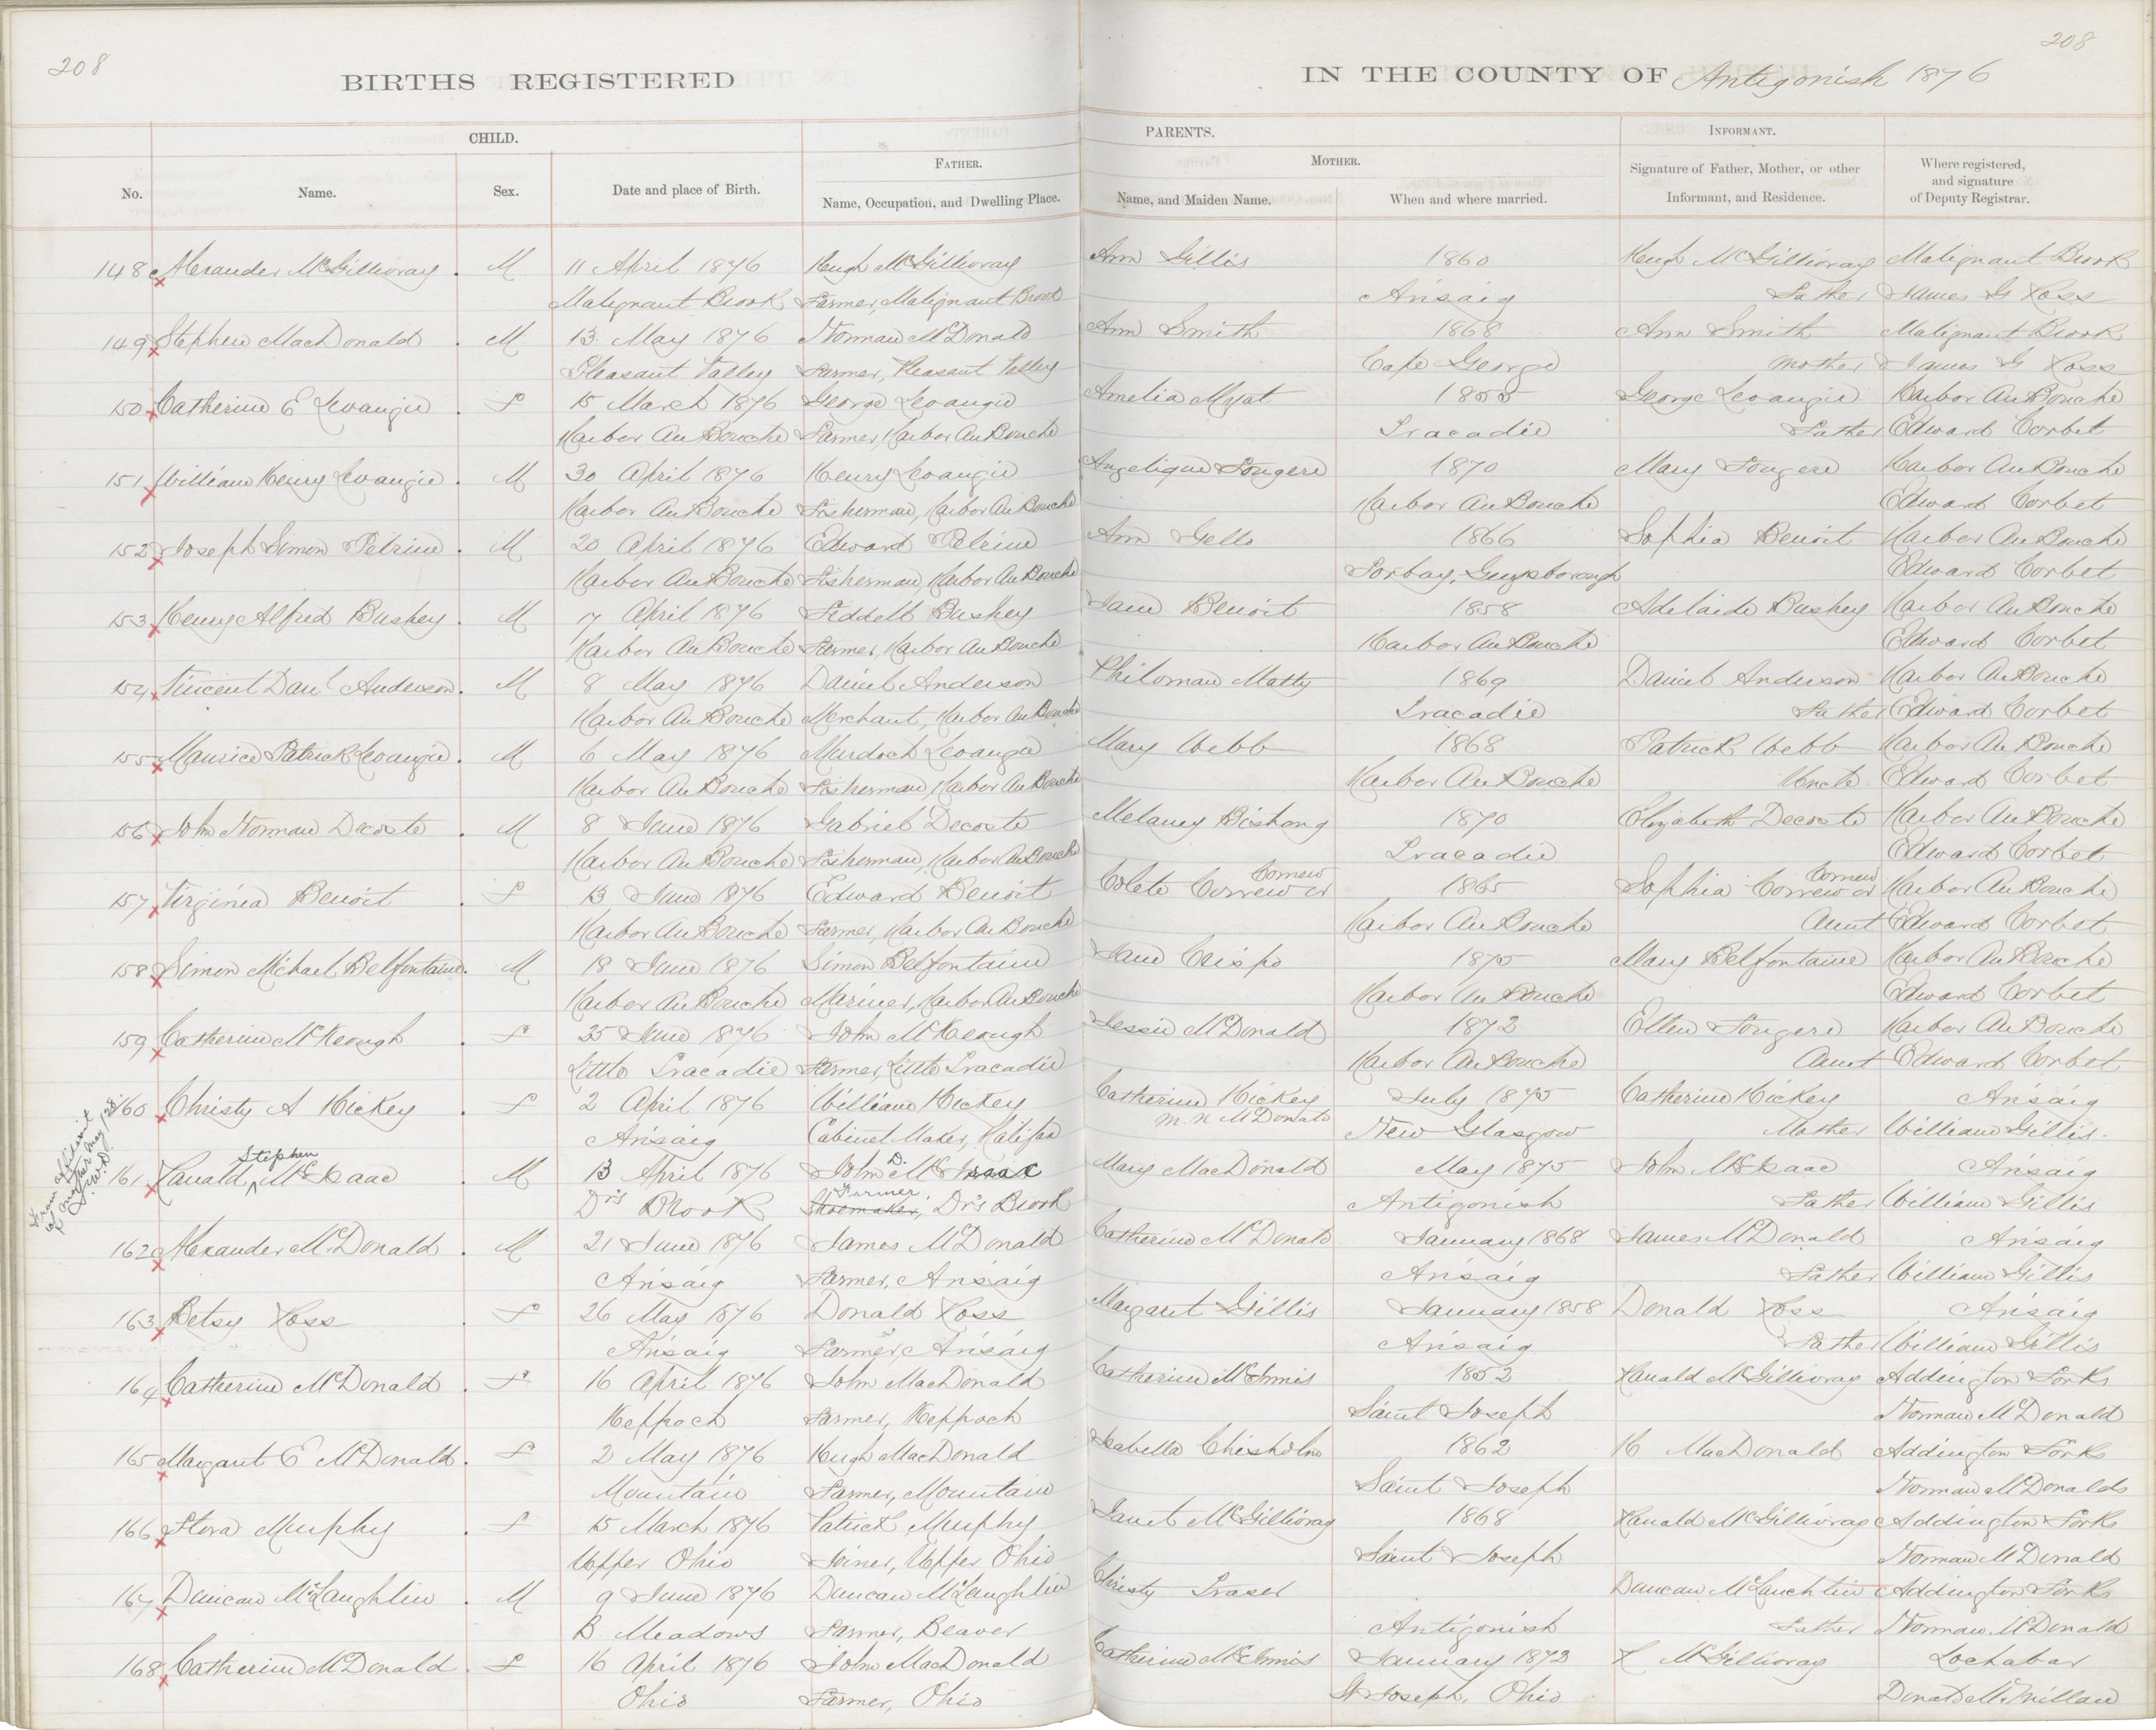 208
208
BIRTHS REGISTERED
IN THE COUNTY OF Antigonish 1876
CHILD.
PARENTS.
INFORMANT.
FATHER.
MOTHER.
No.
Name.
Sex.
Date and place of Birth.
Name, Occupation, and Dwelling Place.
Name, and Maiden Name.
When and where married.
Signature of Father, Mother, or other
Informant, and Residence.
Where registered,
and signature
of Deputy Registrar.
148 Alexander McGillivray . M 11 April 1876 Hugh McGillivray Ann Gillis 1860 Hugh McGillivray Malignant Brook
Malignant Brook Farmer, Malignant Brook Arisaig Father James G Ross
149 Stephen MacDonald . M 13 May 1876 Norman McDonald Ann Smith 1868 Ann Smith Malignant Brook
Pleasant Valley Farmer, Pleasant Valley Cape George Mother James G Ross
150 Catherine E Levangie . F 15 March 1876 George Levangie Amelia Myat 1855 George Levangie Harbor Au Bouche
Harbor Au Bouche Farmer, Harbor Au Bouche Tracadie Father Edward Corbet
151 William Henry Levangie . M 30 April 1876 Henry Levangie Angelique Fougere 1870 Mary Fougere Harbor Au Bouche
Harbor Au Bouche Fisherman, Harbor Au Bouche Harbor Au Bouche Edward Corbet
152 Joseph Simon Petrine . M 20 April 1876 Edward Petrine Ann Gello 1866 Sophia Benoit Harbor Au Bouche
Harbor Au Bouche Fisherman, Harbor Au Bouche Torbay, Guysborough Edward Corbet
153 Henry Alfred Bushey . M 7 April 1876 Bushey Jane Benoit 1858 Adelaide Bushey Harbor Au Bouche
Harbor Au Bouche Farmer, Harbor Au Bouche Harbor Au Bouche Edward Corbet
154 Vincent Danl Anderson . M 8 May 1876 Daniel Anderson Philoman Matty 1869 Daniel Anderson Harbor Au Bouche
Harbor Au Bouche Merchant, Harbor Au Bouche Tracadie Father Edward Corbet
155 Maurice Patrick Levangie . M 6 May 1876 Murdoch Levangie Mary Webb 1868 Patrick Webb Harbor Au Bouche
Harbor Au Bouche Fisherman, Harbor Au Bouche Harbor Au Bouche Uncle Edward Corbet
156 John Norman Decoste . M 8 June 1876 Gabriel Decoste Melaney Bishang 1870 Elizabeth Decoste Harbor Au Bouche
Harbor Au Bouche Fisherman, Harbor Au Bouche Tracadie Edward Corbet
Cornew Cornew
157 Virginia Benoit . F 13 June 1876 Edward Benoit Colete Correw or 1865 Sophia Correw or Harbor Au Bouche
Harbor Au Bouche Farmer, Harbor Au Bouche Harbor Au Bouche Aunt Edward Corbet
158 Simon Michael Belfontaine . M 18 June 1876 Simon Belfontaine Jane Crispo 1875 Mary Belfontaine Harbor Au Bouche
Harbor Au Bouche Mariner, Harbor Au Bouche Harbor Au Bouche Edward Corbet
159 Catherine McKeough . F 25 June 1876 John McKeough Jessie McDonald 1872 Ellen Fougere Harbor Au Bouche
Little Tracadie Farmer, Little Tracadie Harbor Au Bouche Aunt Edward Corbet
160 Christy A Hickey . F 2 April 1876 William Hickey Catherine Hickey July 1875 Catherine Hickey Arisaig
m. n McDonald
Arisaig Cabinet Maker, Halifax New Glasgow Mother William Gillis.
From affidavit
of mother May 1/28.
Stephen D.
161 Ranald ^ McIsaac M 13 April 1876 John McIsaac Mary MacDonald May 1875 John McIsaac Arisaig
Farmer
Drs Brook Shoemaker, Drs Brook Antigonish Father William Gillis
162 Alexander McDonald . M 21 June 1876 James McDonald Catherine McDonald January 1868 James McDonald Arisaig
Arisaig Farmer, Arisaig Arisaig Father William Gillis
163 Betsy Ross . F 26 May 1876 Donald Ross Margaret Gillis January 1858 Donald Ross Arisaig
Arisaig Farmer, Arisaig Arisaig Father William Gillis
164 Catherine McDonald . F 16 April 1876 John MacDonald Catherine McInnis 1852 Ranald McGillivray Addington Forks
Keppoch Farmer, Keppoch Saint Joseph Norman McDonald
165 Margaret E McDonald . F 2 May 1876 Hugh MacDonald Isabella Chisholm 1862 H MacDonald Addington Forks
Mountain Farmer, Mountain Saint Joseph Norman McDonald
166 Flora Murphy . F 15 March 1876 Patrick Murphy Janet McGillivray 1868 Ranald McGillivray Addington Forks
Upper Ohio Joiner, Upper Ohio Saint Joseph Norman McDonald
167 Duncan McLaughlin . M 9 June 1876 Duncan McLaughlin Christy Fraser Duncan McLauchlin Addington Forks
B Meadows Farmer, Beaver Antigonish Father Norman McDonald
168 Catherine McDonald . F 16 April 1876 John MacDonald Catherine McInnis January 1873 R McGillivray Lochabar
Ohio Farmer, Ohio St Joseph, Ohio Donald McMillan